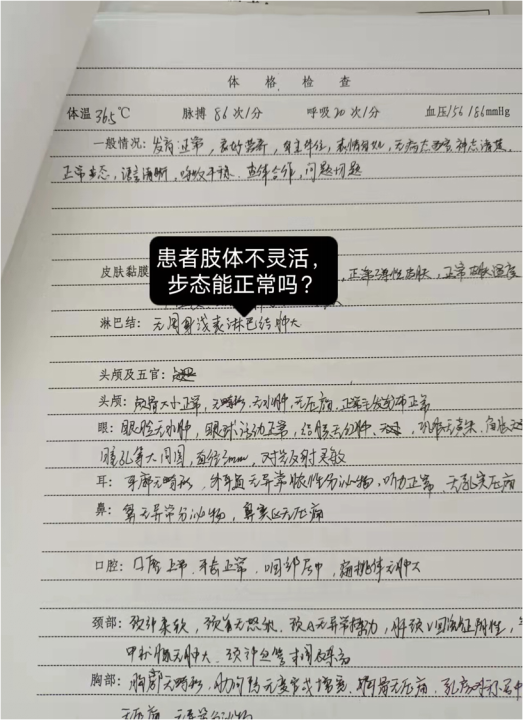 体 格 检 查
体温 36.5 ℃ 脉搏 86 次/分 呼吸 20 次/分 血压 156/86 mmHg
一般情况：发育正常，良好营养，自主体位，表情自如，无病态面容，神志清楚，
正常步态，语言清晰，呼吸平稳，查体合作，问题切题
患者肢体不灵活，
步态能正常吗？
皮肤黏膜 ，正常弹性皮肤，正常皮肤湿度
淋巴结：无周身浅表淋巴结肿大
头颅及五官：
头颅：颅骨大小正常，无畸形，无水肿，无压痛，正常毛发分布正常
眼：眼睑无水肿，眼球活动正常，结膜无 ，巩膜无黄染，角膜
瞳孔等大同圆，直径3mm，对光反射灵敏
耳：耳廓无畸形，外耳道无异常脓性分泌物，听力正常，无乳突压痛
鼻：鼻无异常分泌物，鼻窦区无压痛
口腔：口唇 正常，咽部居中，扁桃体无肿大
颈部：颈对柔软，颈 无怒张，颈A无异常搏动，肝颈V回流征阴性，
甲状腺无肿大，颈
胸部：胸廓无畸形，肋间隙无变窄或增宽，胸骨无压痛，乳房对称
无压痛，无异常分泌物